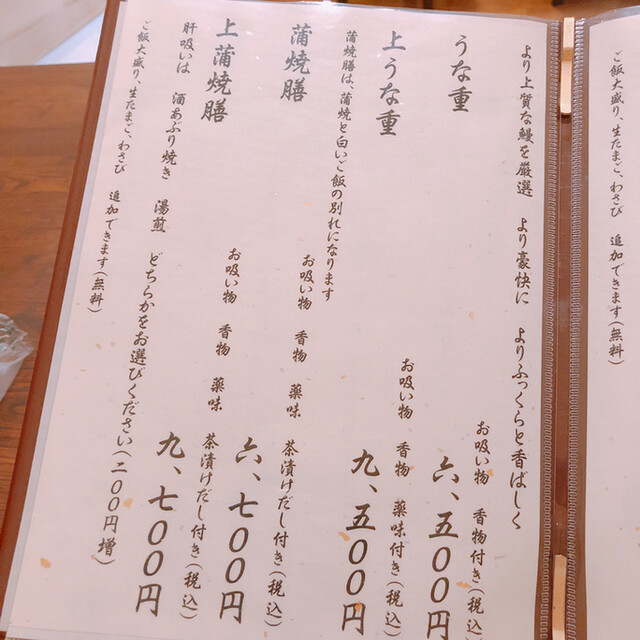 ご飯大盛り、生たまご、わさび　追加できます(無料)
より上質な鰻を厳選　より豪快に　よりふっくらと香ばしく
うな重
お吸い物　香物付き(税込)
六、五〇〇円
上うな重
お吸い物　香物　薬味付き(税込)
九、五〇〇円
蒲焼膳は、蒲焼と白いご飯の別れになります
蒲焼膳
お吸い物　香物　薬味　茶漬けだし付き(税込)
六、七〇〇円
上蒲焼膳
お吸い物　香物　薬味　茶漬けだし付き(税込)
九、七〇〇円
肝吸いは　酒あぶり焼き　湯煎　どちらかをお選びください(二〇〇円増)
ご飯大盛り、生たまご、わさび　追加できます(無料)